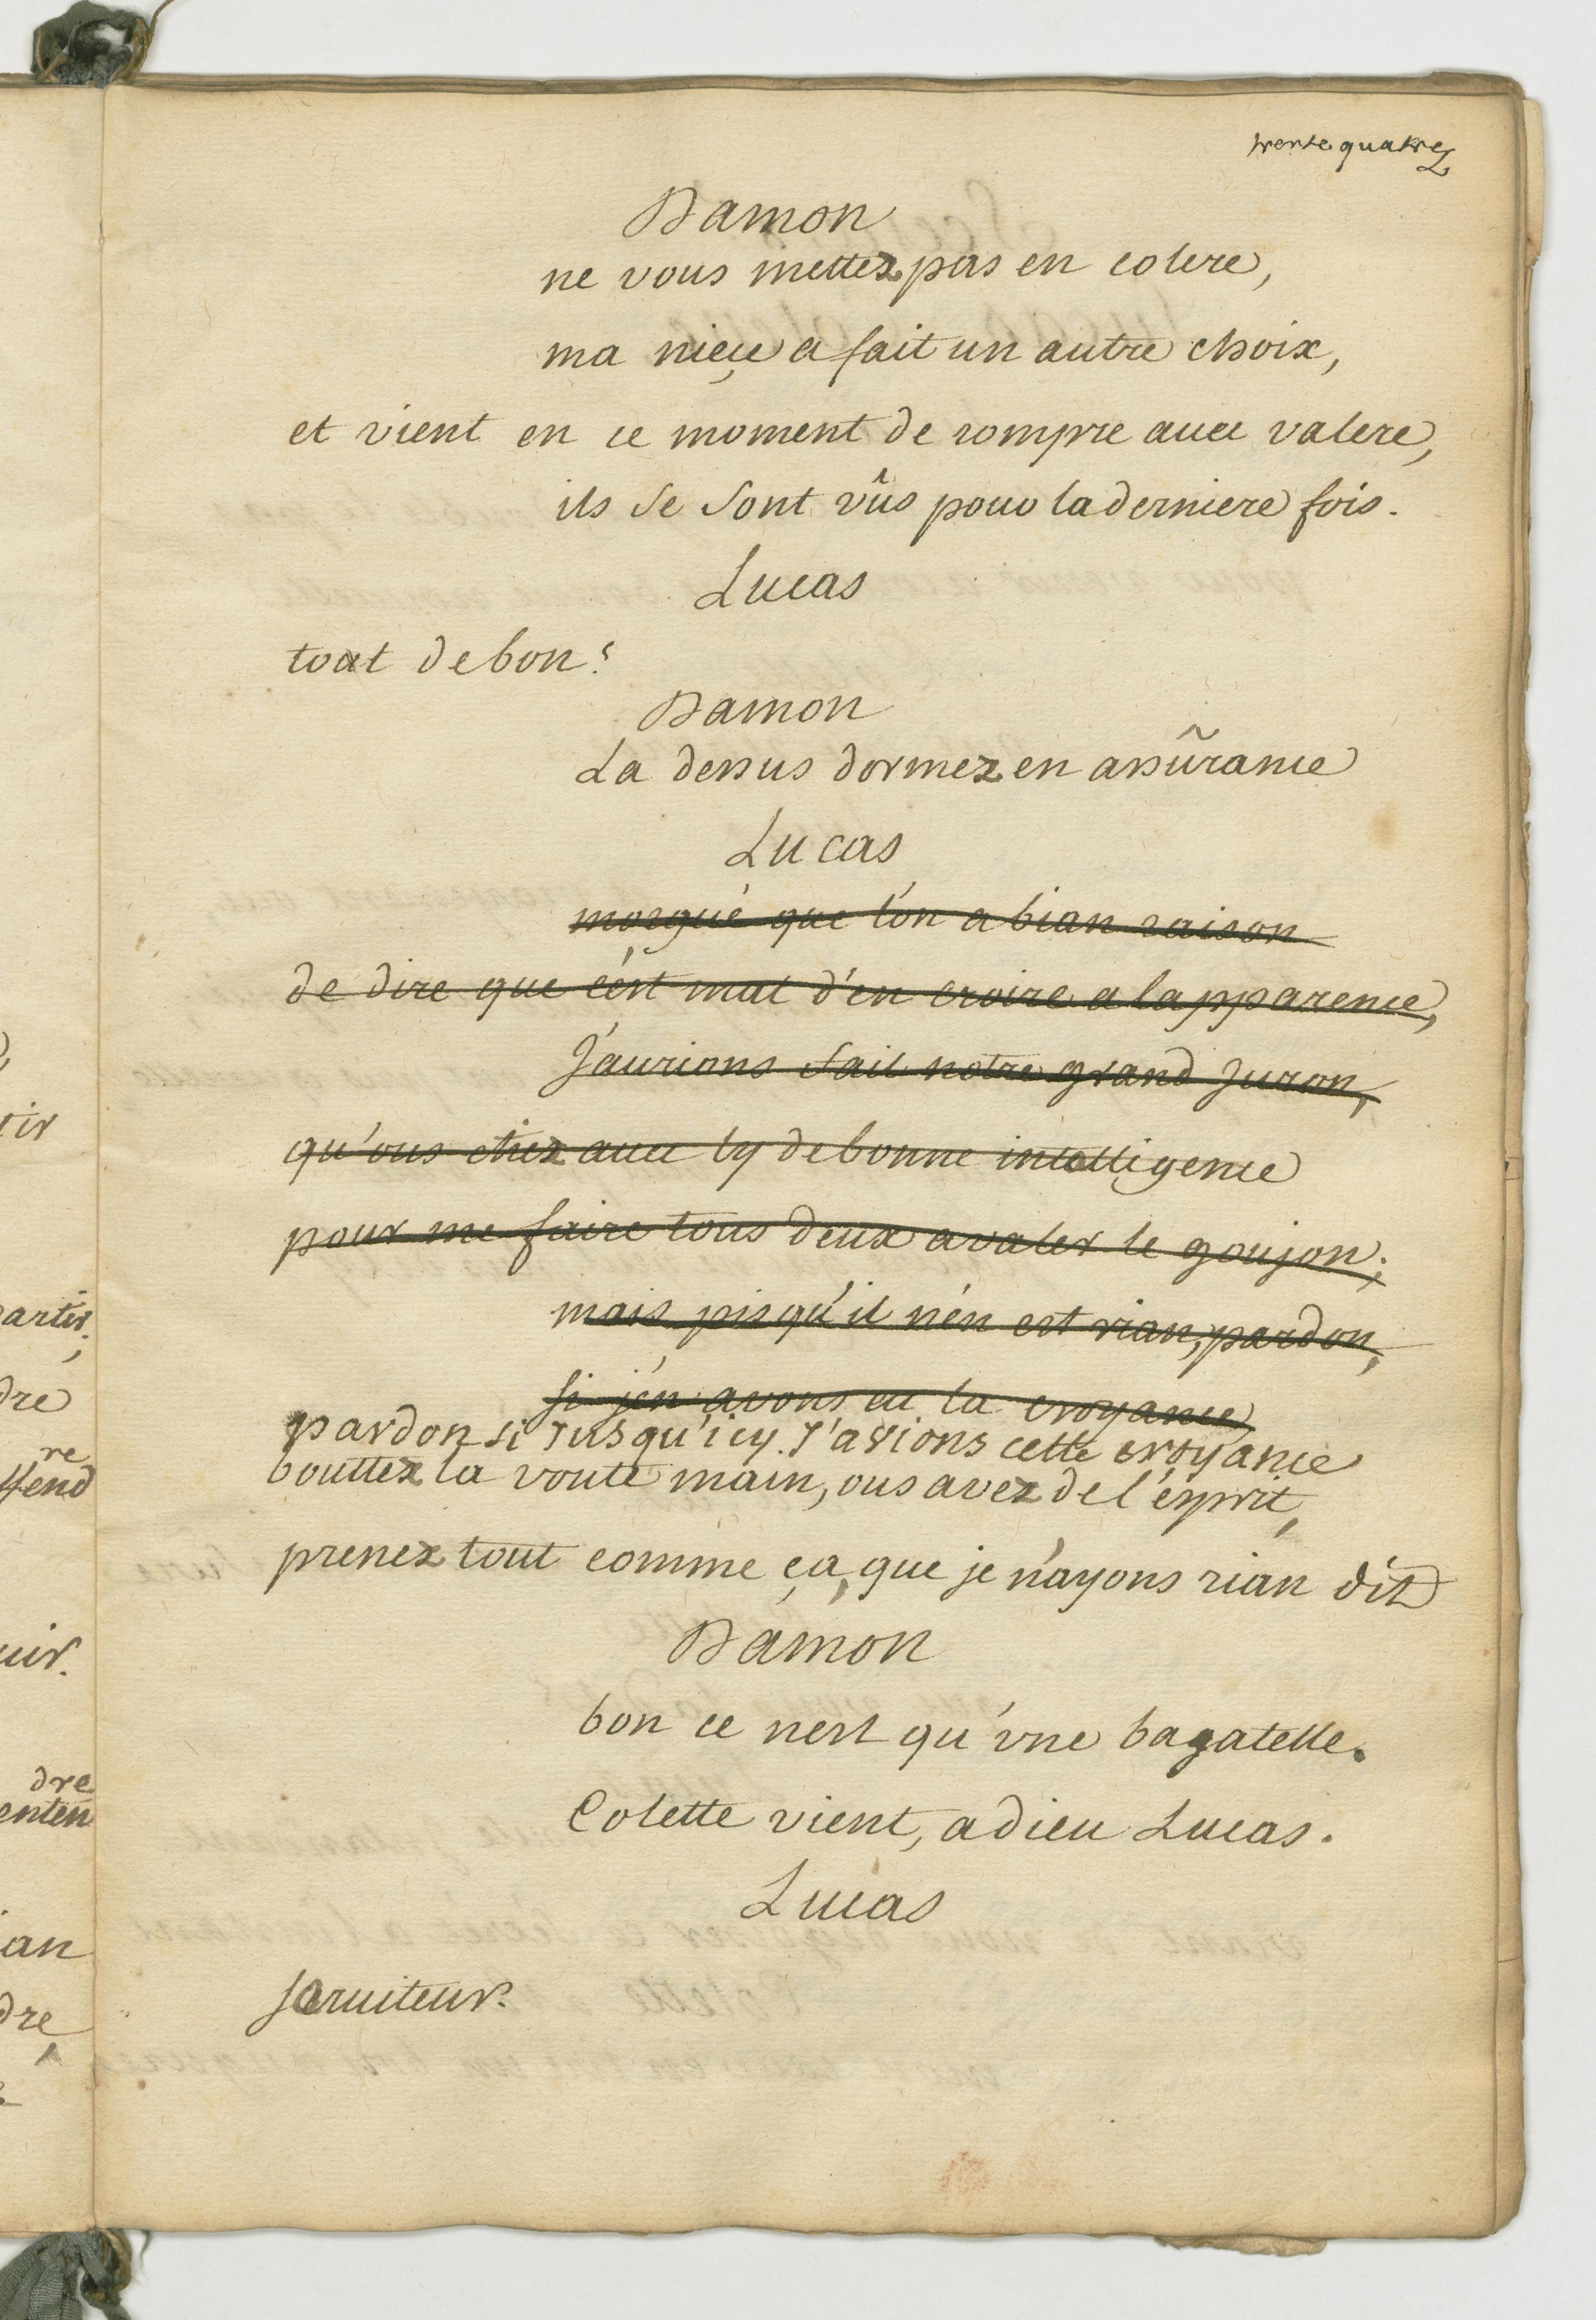 trente quatre
Damon
ne vous mettez pas en colere,
ma nieçe a fait un autre choix,
et vient en ce moment de rompre auec valere,
ils se sont vûs pour la derniere fois.
Lucas
tout de bon?
Damon
La dessus dormez en assûrance
Lucas
morgué que l'on a bian raison
de dire que c'est mal d'en croire a lapparence,
J'aurions fait notre grand Juron,
qu'ous etiez auec ly de bonne intelligence
pour me faire tous deux avaler le goujon;
mais pisqu'il n'en est rian, pardon,
si j'en avons eu la croyance
pardon si Jusqu'icy. J'avions cette croyance
bouttez la voute main, ous avez de l'esprit,
prenez tout comme ça, que je n'ayons rian dit
Damon
bon ce nest qu'vne bagatelle.
Colette vient, adieu Lucas.
Lucas
seruiteur.
tir
partir,
dre
re
ffend
uir.
dre
enten
ian
dre